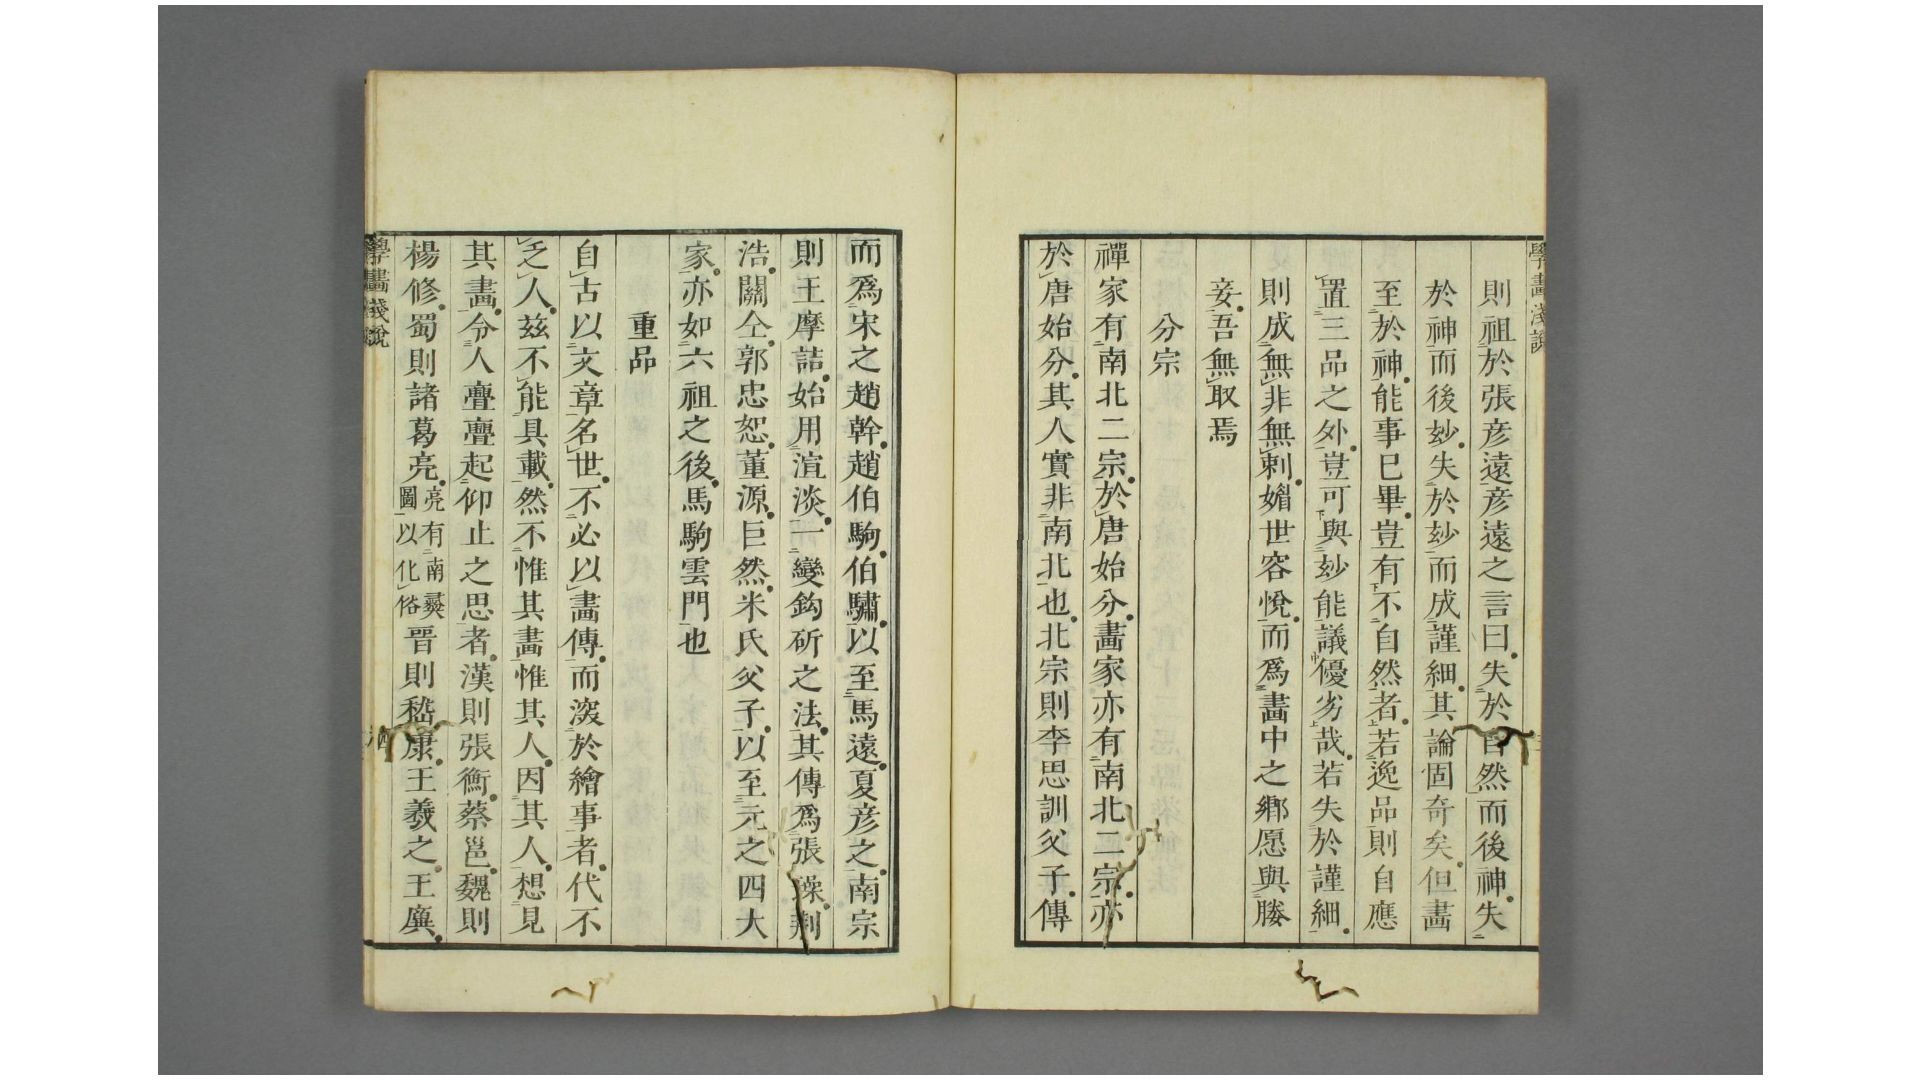 則祖於張彦遠彦遠之言曰失於自然而後神失
於神而後妙失於妙而成謹細其論固奇矣但畫
至於神能事已畢豈有不自然者若逸品則自應
置三品之外豈可與妙能議優劣哉若失於謹細
則成無非無刺媚世容悅而爲畫中之鄉愿與媵
妾吾無取焉
分宗
禪家有南北二宗於唐始分畫家亦有南北二宗亦
於唐始分其人實非南北也北宗則李思訓父子傳
而爲宋之趙幹趙伯駒伯驌以至馬遠夏彦之南宗
則王摩詰始用渲淡一變鈎斫之法其傳爲張璪荆
浩關仝郭忠恕董源巨然米氏父子以至元之四大
家亦如六祖之後馬駒雲門也
重品
自古以文章名世不必以畫傳而深於繪事者代不
乏人茲不能具載然不惟其畫惟其人因其人想見
其畫令人亹亹起仰止之思者漢則張衡蔡邕魏則
楊修蜀則諸葛亮亮有南彝圖以化俗晋則嵇康王羲之王廙
學畫淺說